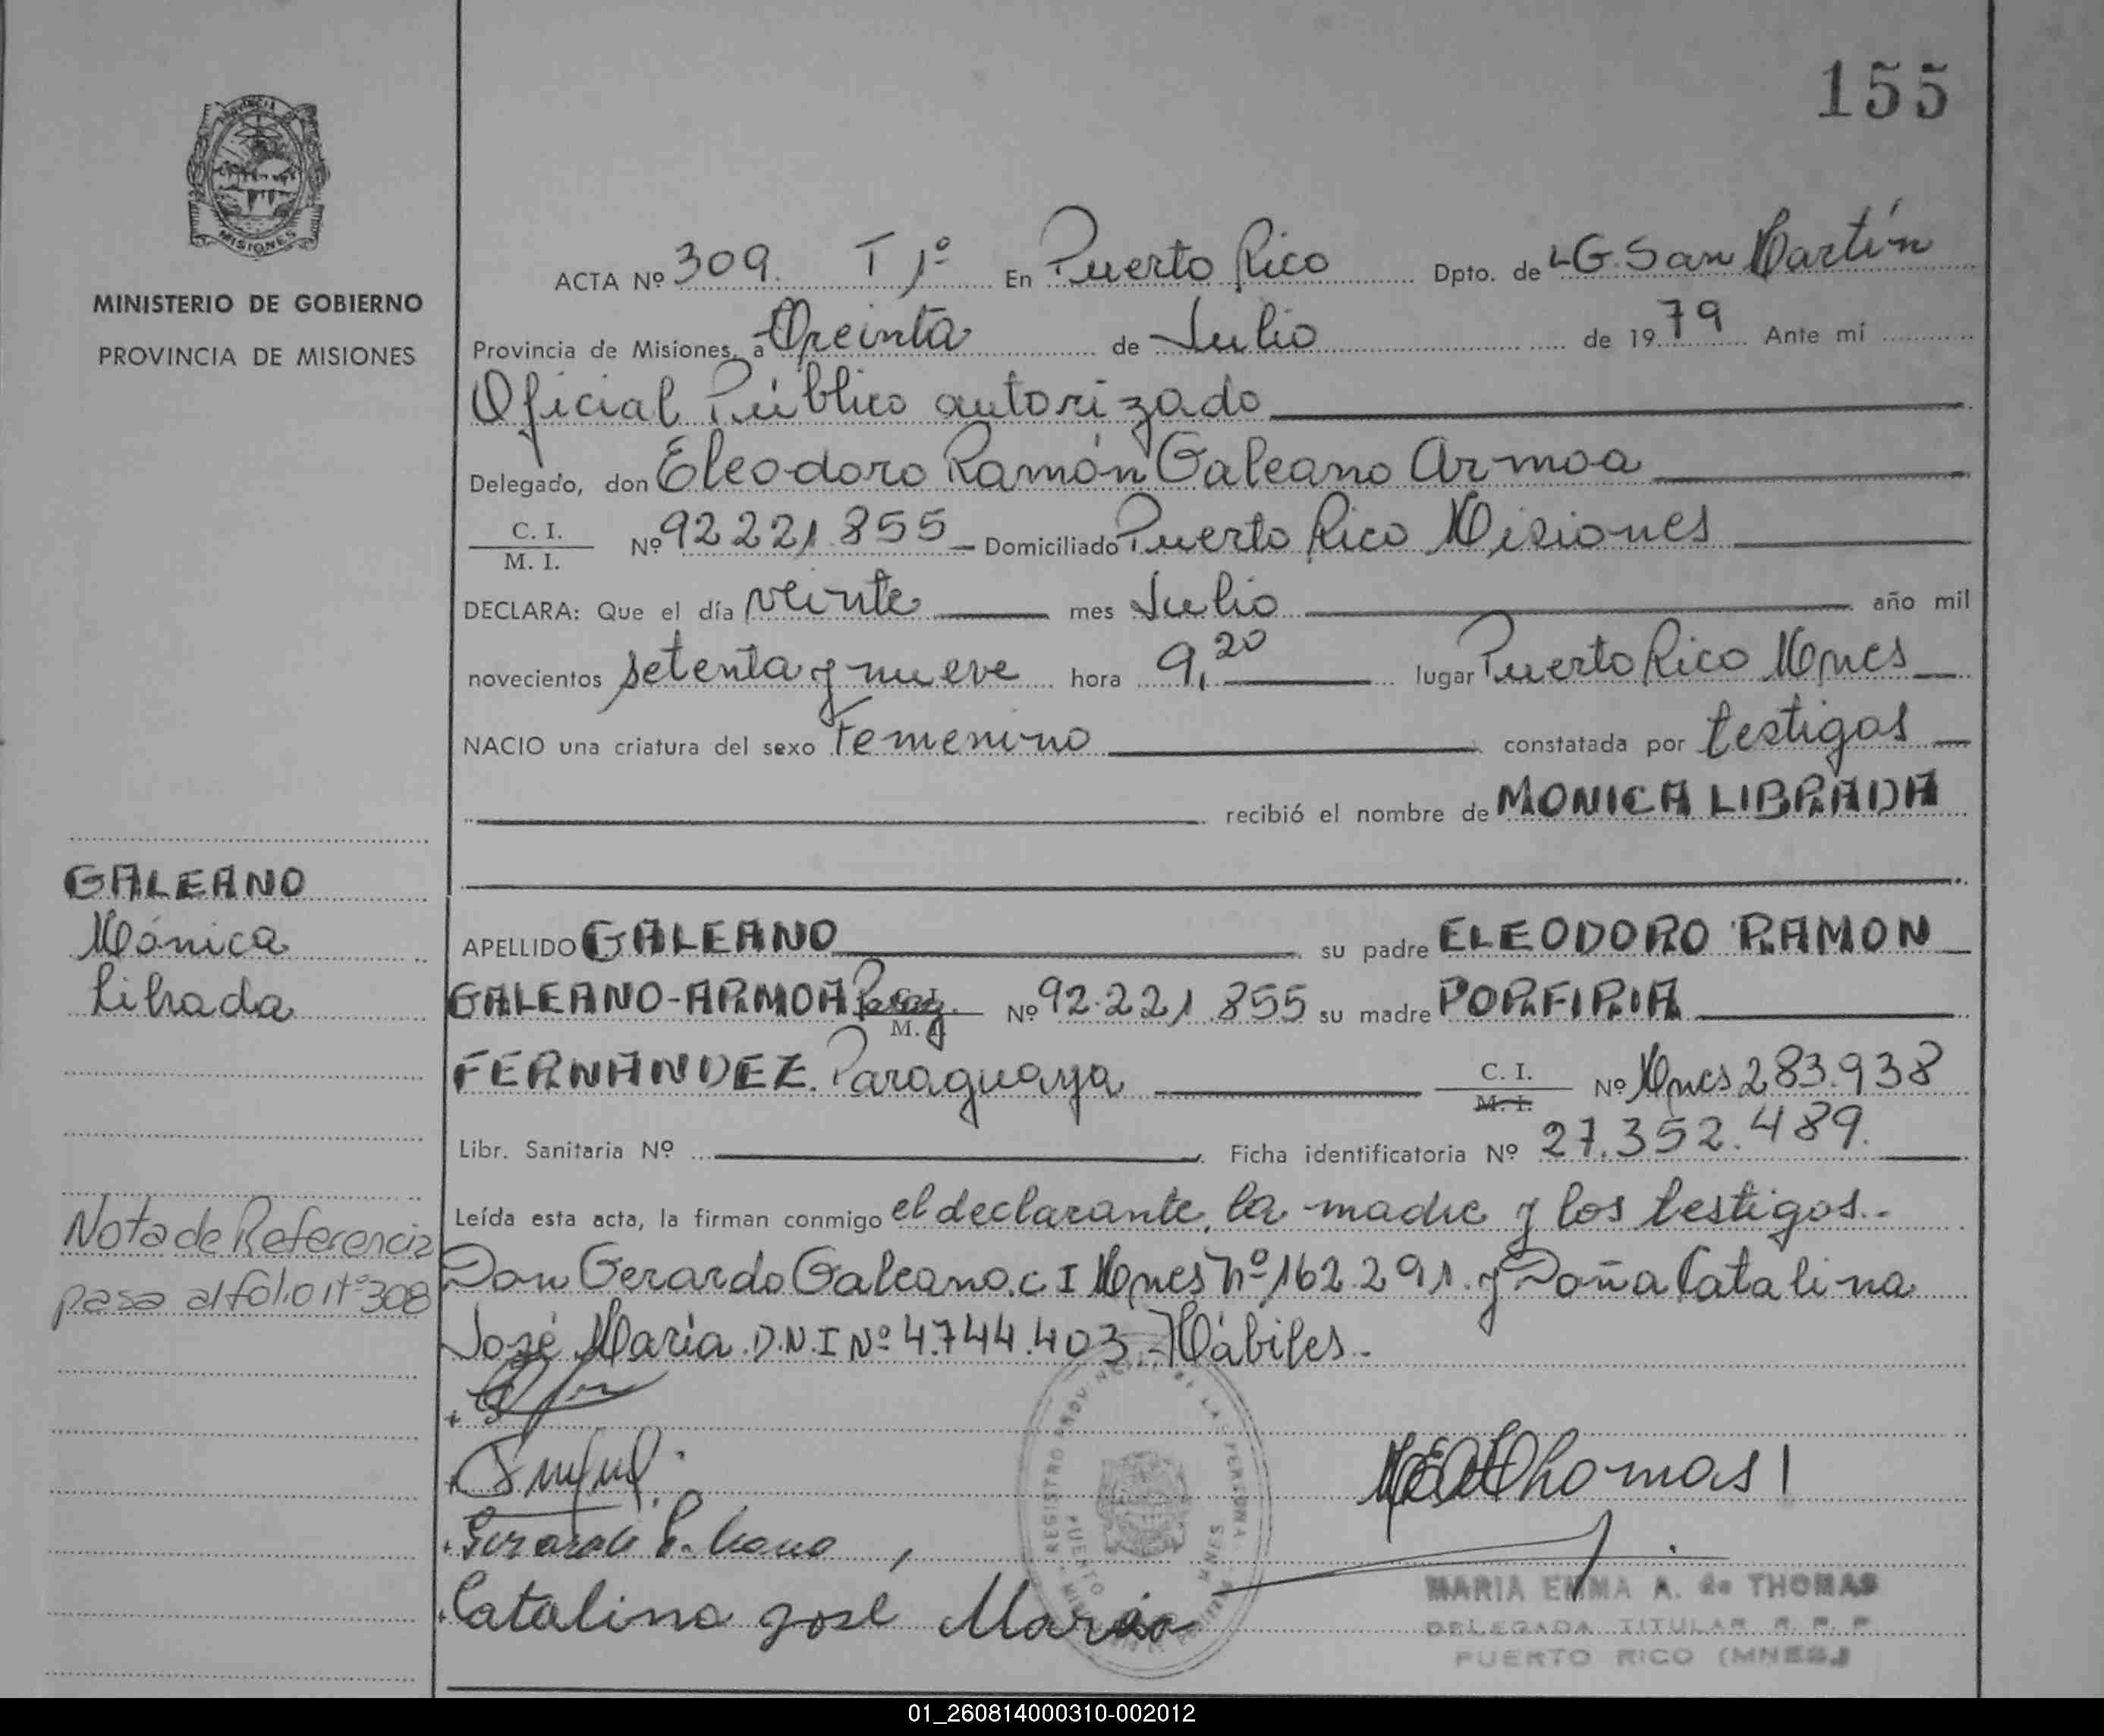 155
PROVINCIA
MISIONES
MINISTERIO DE GOBIERNO
PROVINCIA DE MISIONES
ACTA Nº 309. T 1º En Puerto Rico Dpto. de LG. San Martín
Provincia de Misiones, a Treinta de Julio de 1979 Ante mí
Oficial Público autorizado
Delegado, don Eleodoro Ramón Galeano Armoa
C. I.
M. I. Nº 92 221 855 Domiciliado Puerto Rico Misiones
DECLARA: Que el día veinte mes Julio año mil
novecientos setenta y nueve hora 9,20 lugar Puerto Rico Mnes
NACIO una criatura del sexo Femenino constatada por testigos
recibió el nombre de MONICA LIBRADA
APELLIDO GALEANO su padre ELEODORO RAMON
GALEANO-ARMOA Parag. M. Nº 92.221.855 su madre PORFIRIA
FERNANDEZ. Paraguaya C. I. M. I. Nº Mnes 283.938
Libr. Sanitaria Nº Ficha identificatoria Nº 27.352.489.
Leída esta acta, la firman conmigo el declarante, la madre y los testigos.-
Don Gerardo Galeano. C I Mnes nº 162.291. y Doña Catalina
José María. D.N.I Nº 4.744.403.- Hábiles.-
GALEANO
Mónica
Librada
Nota de Referencia
pasa al folio nº 308
Gerardo Galeano
Catalina José María
Thomas
REGISTRO DE LAS PERSONAS
MARIA EMMA A. de THOMAS
DELEGADA TITULAR R. P. P.
PUERTO RICO (MNES.)
01_260814000310-002012